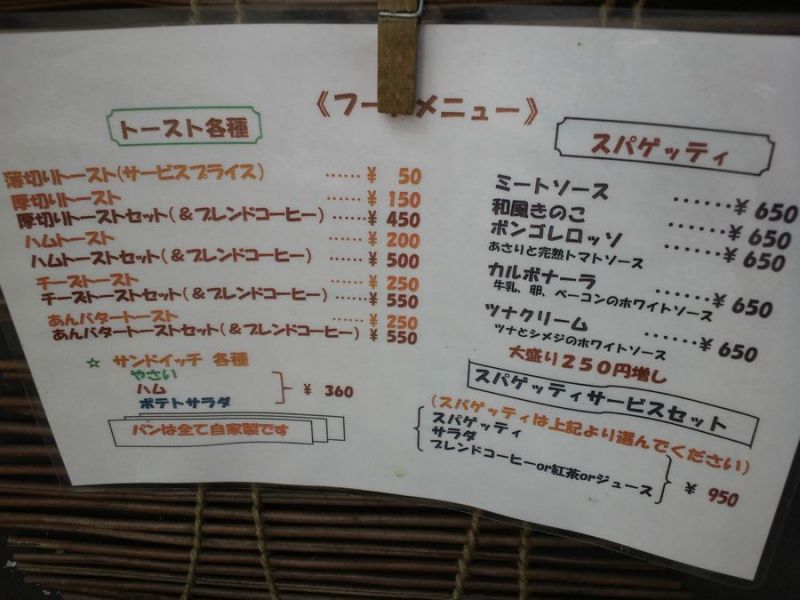 《フードメニュー》
トースト各種
薄切りトースト(サービスプライス) ……¥ 50
厚切りトースト ……¥ 150
厚切りトーストセット(&ブレンドコーヒー) ……¥ 450
ハムトースト ……¥ 200
ハムトーストセット(&ブレンドコーヒー) ……¥ 500
チーズトースト ……¥ 250
チーズトーストセット(&ブレンドコーヒー) ……¥ 550
あんバタートースト ……¥ 250
あんバタートーストセット(&ブレンドコーヒー) ……¥ 550
☆ サンドイッチ 各種
やさい
ハム ¥ 360
ポテトサラダ
パンは全て自家製です
スパゲッティ
ミートソース ……¥ 650
和風きのこ ……¥ 650
ボンゴレロッソ ……¥ 650
あさりと完熟トマトソース
カルボナーラ ……¥ 650
牛乳、卵、ベーコンのホワイトソース
ツナクリーム ……¥ 650
ツナとシメジのホワイトソース
大盛り250円増し
スパゲッティサービスセット
(スパゲッティは上記より選んでください)
スパゲッティ
サラダ
ブレンドコーヒーor紅茶orジュース ¥ 950